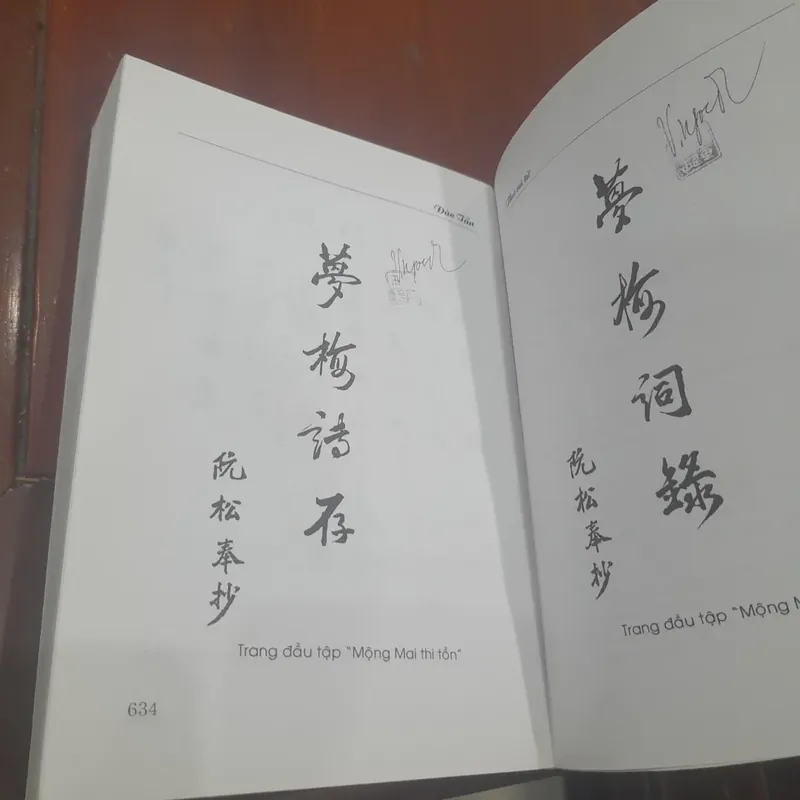 Đào Tấn
夢梅詩存
阮松奉抄
Trang đầu tập “Mộng Mai thi tồn”
634
夢梅詞錄
阮松奉抄
Trang đầu tập “Mộng